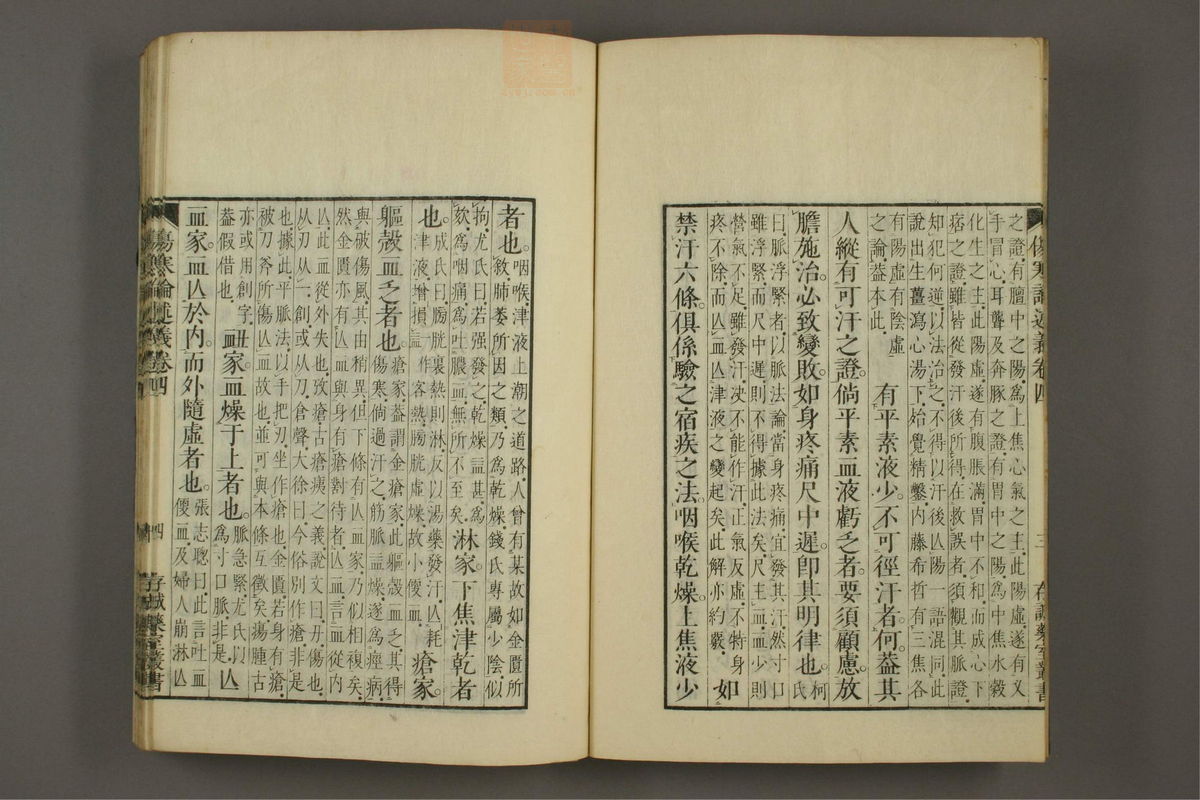 傷寒論述義卷四 三 存誠藥室叢書
之證有膻中之陽為上焦心氣之主此陽虛遂有叉
手冒心耳聾及奔豚之證有胃中之陽為中焦水穀
化生之主此陽虛遂有腹脹滿胃中不和而成心下
痞之證雖皆從發汗後所得在救誤者須觀其脈證
知犯何逆以法治之不得以汗後亾陽一語混同此
說出生薑瀉心湯下始覺精鑿內藤希哲有三焦各
有陽虛有陰虛
之論蓋本此
有平素液少不可徑汗者何蓋其
人縱有可汗之證倘平素血液虧乏者要須顧慮放
膽施治必致變敗如身疼痛尺中遲卽其明律也
柯
氏
曰脈浮緊者以脈法論當身疼痛宜發其汗然寸口
雖浮緊而尺中遲則不得據此法矣尺主血血少則
營氣不足雖發汗決不能作汗正氣反虛不特身
疼不除而亾血亾津液之變起矣此解亦約嚴
如
禁汗六條俱係驗之宿疾之法咽喉乾燥上焦液少
者也
咽喉津液上潮之道路人曾有某故如金匱所
敘肺萎所因之類乃為乾燥錢氏專屬少陰似
拘尤氏曰若强發之乾燥益甚為
欬為咽痛為吐膿血無所不至矣
淋家下焦津乾者
也
成氏曰膀胱裏熱則淋反以湯藥發汗亾耗
津液增損一作益客熱膀胱虛燥故小便血
瘡家
軀殼血乏者也
瘡家蓋謂金瘡家此軀殼血乏之其得
傷寒倘過汗之筋脈益燥遂為痙病
與破傷風其由稍異但下條有亾血家乃似相複矣
然金匱亦有亾血與身有瘡對待者亾血言血從內
亾此血從外失也攷瘡古瘡痍之義說文曰刅傷也
从刃从一創或从刀倉聲大徐曰今俗別作瘡非是
也據此平脈法以手把刃坐作瘡也金匱若身有瘡
被刀斧所傷亾血故也並可與本條互徵矣瘍腫古
亦或用創字
蓋假借也
衄家血燥于上者也
脈急緊尤氏以
為寸口脈非是
亾
血家血亾於內而外隨虛者也
張志聰曰此言吐血
便血及婦人崩淋亾
傷寒論述義卷四 四 存誠藥室叢書